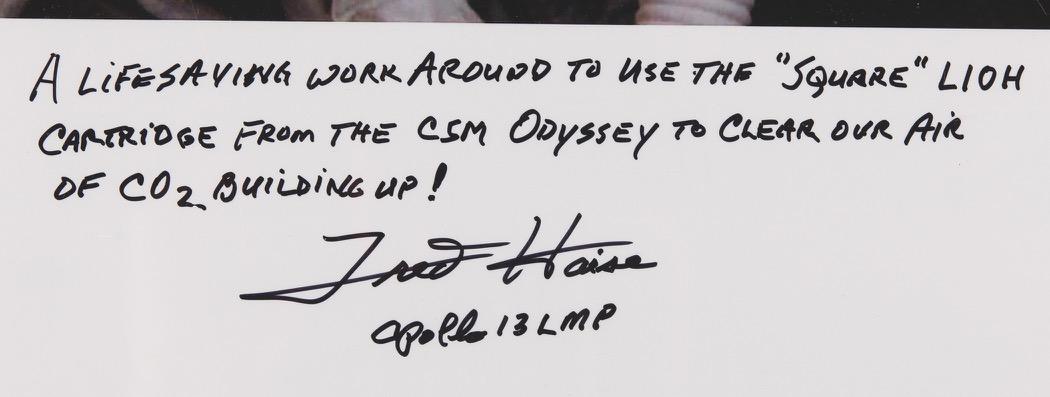 A LIFESAVING WORK AROUND TO USE THE "SQUARE" LIOH
CARTRIDGE FROM THE CSM ODYSSEY TO CLEAR OUR AIR
OF CO2 BUILDING UP!
Fred Haise
Apollo 13 LMP